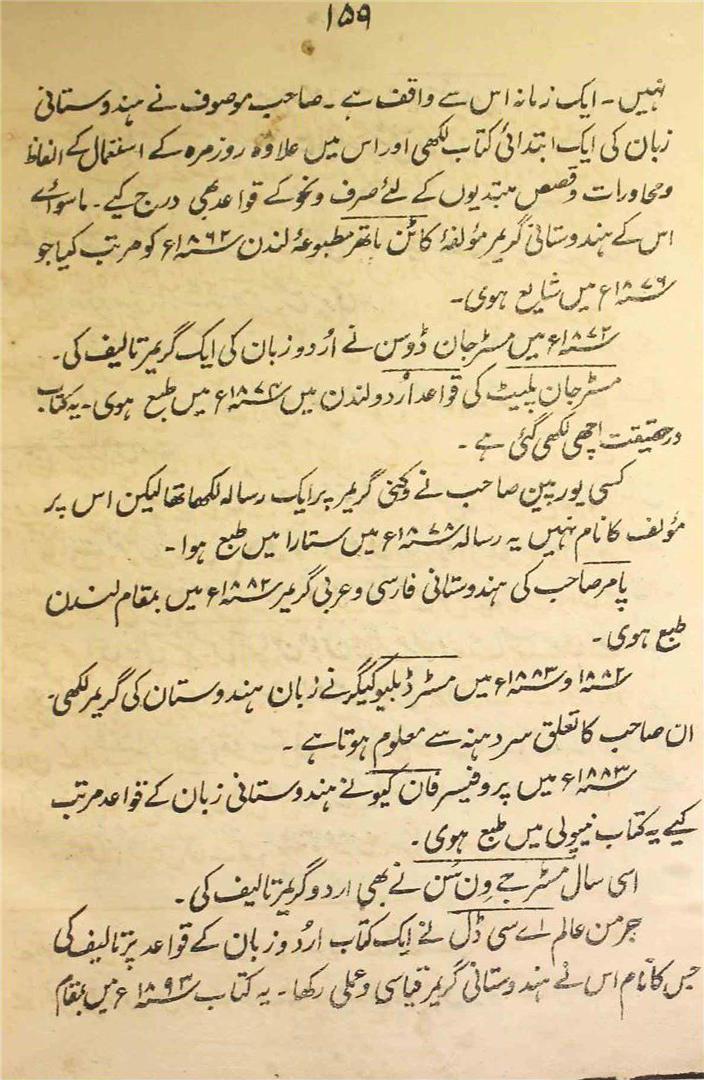 ۱۵۹
نہیں۔ ایک زمانہ اس سے واقف ہے۔ صاحب موصوف نے ہندوستانی
زبان کی ایک ابتدائی کتاب لکھی اور اس میں علاوہ روزمرہ کے استعمال کے الفاظ
و محاورات و قصص مبتدیوں کے لئے صرف و نحو کے قواعد بھی درج کیے۔ ماسوائے
اس کے ہندوستانی گریمر مؤلفۂ کاٹن ماتھر مطبوعۂ لندن ۱۸۶۲ء کو مرتب کیا جو
۱۸۷۶ء میں شایع ہوی۔
۱۸۷۲ء میں مسٹر جان ڈوسن نے اُردو زبان کی ایک گریمر تالیف کی۔
مسٹر جان پلیٹ کی قواعد اُردو لندن میں ۱۸۷۴ء میں طبع ہوی۔ یہ کتاب
درحقیقت اچھی لکھی گئی ہے۔
کسی یورپین صاحب نے دکنی گریمر پر ایک رسالہ لکھا تھا لیکن اس پر
مؤلف کا نام نہیں یہ رسالہ ۱۸۷۸ء میں ستارا میں طبع ہوا۔
پامر صاحب کی ہندوستانی فارسی و عربی گریمر ۱۸۸۲ء میں بمقام لندن
طبع ہوی۔
۱۸۸۲ و ۱۸۸۳ء میں مسٹر ڈبلیو کیگر نے زبان ہندوستان کی گریمر لکھی۔
ان صاحب کا تعلق سردہنہ سے معلوم ہوتا ہے۔
۱۸۸۳ء میں پروفیسر فان کیو نے ہندوستانی زبان کے قواعد مرتب
کیے یہ کتاب نیپولی میں طبع ہوی۔
اسی سال مسٹر جے ون سُن نے بھی اردو گریمر تالیف کی۔
جرمن عالم اے سی ڈل نے ایک کتاب اُردو زبان کے قواعد پر تالیف کی
جس کا نام اس نے ہندوستانی گریمر قیاسی و عملی رکھا۔ یہ کتاب ۱۸۹۳ء میں بمقام